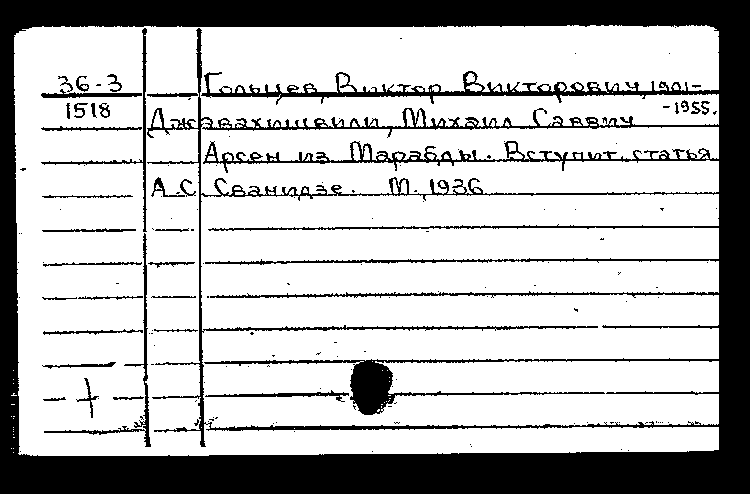 36-3 Гольцев, Виктор Викторович, 1901-
1518 Джавахишвили, Михаил Саввич -1955.
Арсен из Марабды. Вступит. статья
А.С. Сванидзе. М., 1936